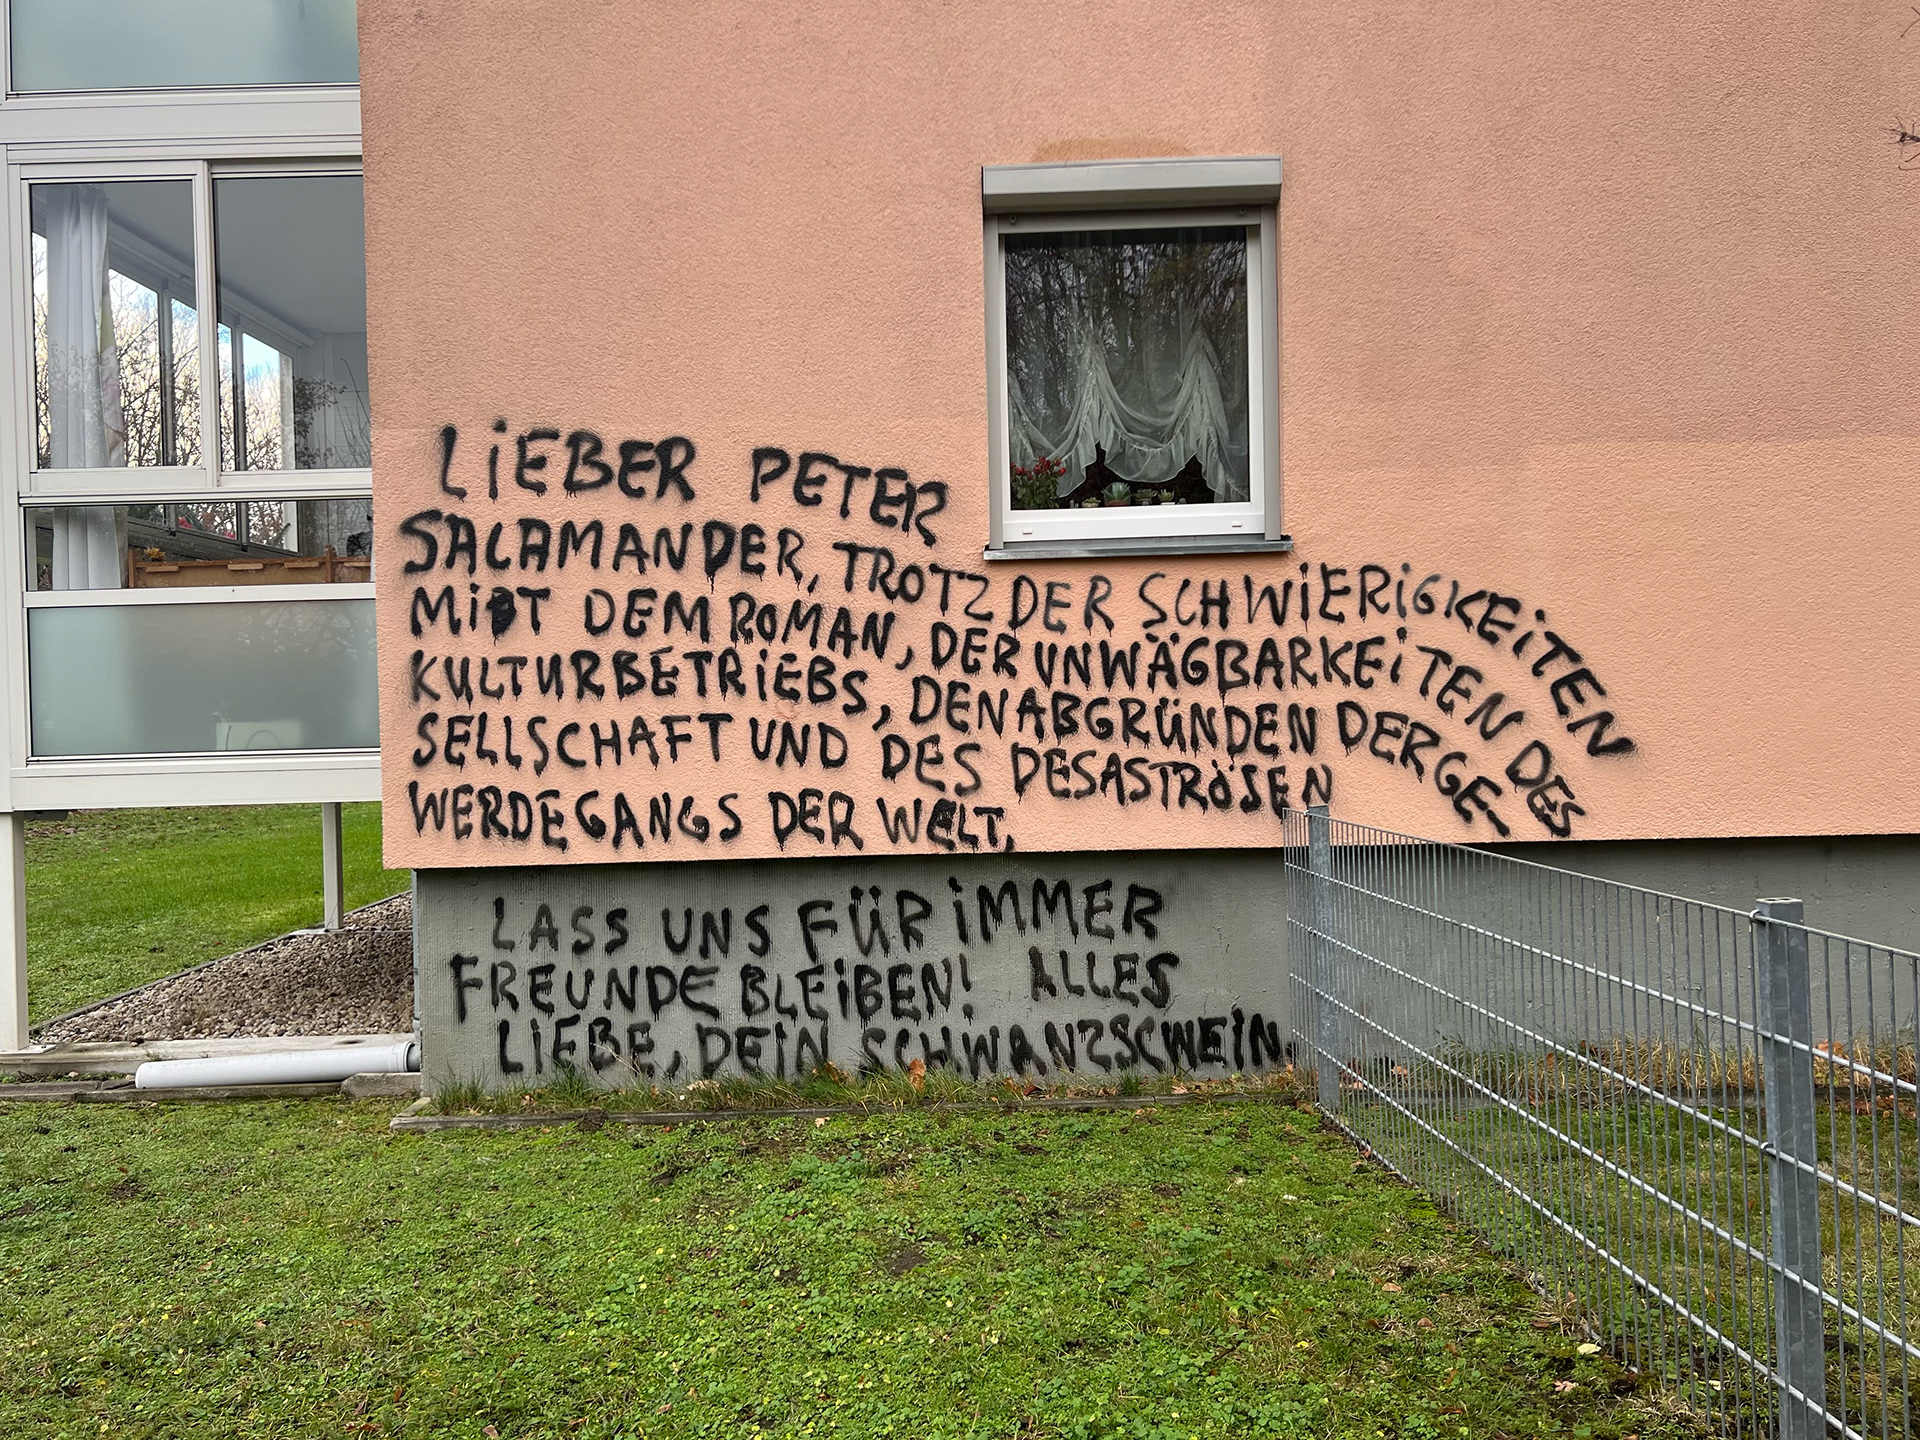 LiEBER PETER
SALAMANDER, TROTZ DER SCHWiERiGKEiTEN
MiT DEM ROMAN, DER UNWÄGBARKEiTEN DES
KULTURBETRiEBS, DEN ABGRÜNDEN DER GE-
SELLSCHAFT UND DES DESASTRÖSEN
WERDEGANGS DER WELT,
LASS UNS FÜR iMMER
FREUNDE BLEiBEN! ALLES
LiEBE, DEiN SCHWANZSCWEiN.